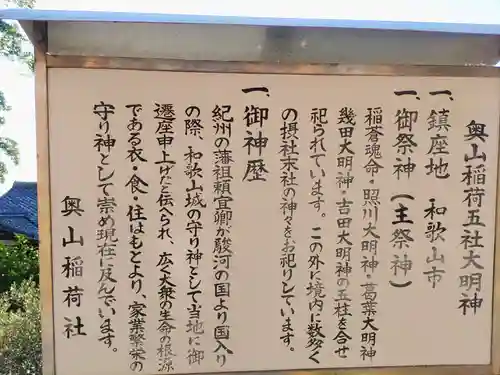 奥山稲荷五社大明神
一、鎮座地 和歌山市
一、御祭神（主祭神）
稲蒼魂命・照川大明神・葛葉大明神
幾田大明神・吉田大明神の五柱を合せ
祀られています。この外に境内に数多く
の摂社末社の神々をお祀りしています。
一、御神歴
紀州の藩祖頼宣卿が駿河の国より国入り
の際、和歌山城の守り神として当地に御
遷座申上げたと伝へられ、広く大衆の生命の根源
である衣・食・住はもとより、家業繁栄の
守り神として崇め現在に及んでいます。
奥山稲荷社